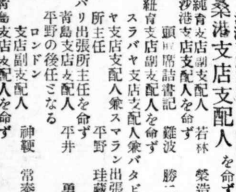 桑港支店支配人を命ず
紐育支店副支配人 若林 榮
沙港支店支配人を命ず
顧問席詰書記 難波 勝二
紐育支店支配人を命ず
スラバヤ支店支配人兼バタビ
ヤ支店支配人兼スマラン出張
所主任 平野 珪藏
バリ出張所主任を命ず
青島支店支配人 平井 勇
平野の後任となる
ロンドン
支店副支配人 神鞭 常泰
青島支店支配人を命ず